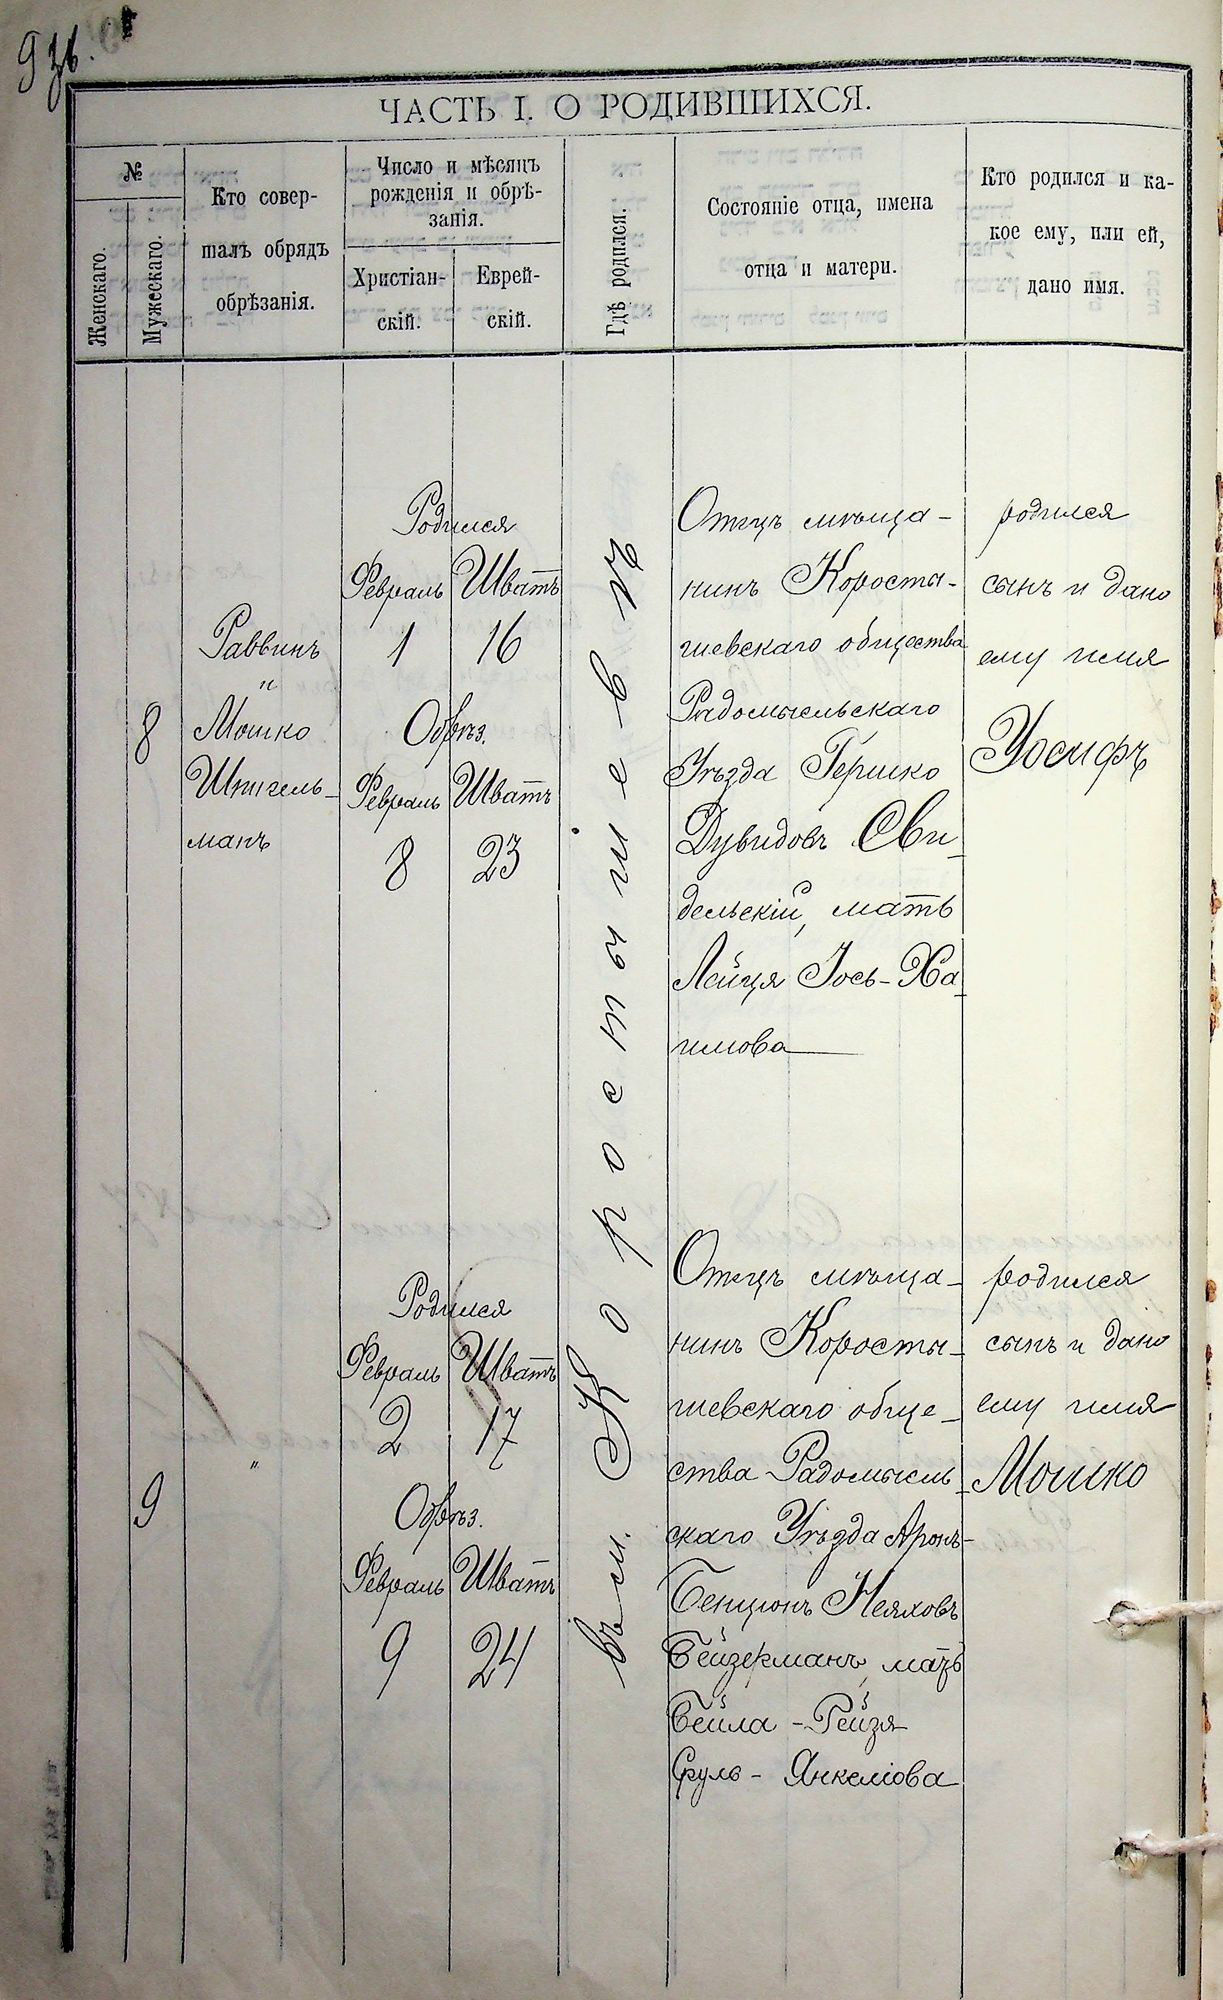 9 зв.
ЧАСТЬ I. О РОДИВШИХСЯ.
№
Женскаго.
Мужескаго.
Кто совер-
шалъ обрядъ
обрѣзанія.
Число и мѣсяцъ
рожденія и обрѣ-
занія.
Христіан-
скій.
Еврей-
скій.
Гдѣ родился.
Состояніе отца, имена
отца и матери.
Кто родился и ка-
кое ему, или ей,
дано имя.
8
Раввинъ
и
Мошко
Шпигель-
манъ
Родился
Февраль Шватъ
1 16
Обрѣз.
Февраль Шватъ
8 23
въ м. Коростышевѣ
Отецъ мѣща-
нинъ Коросты-
шевскаго общества
Радомысльскаго
Уѣзда Гершко
Дувидовъ Сви-
дельскій, мать
Лейця Іось-Ха-
имова
родился
сынъ и дано
ему имя
Иосифъ
9
"
Родился
Февраль Шватъ
2 17
Обрѣз.
Февраль Шватъ
9 24
Отецъ мѣща-
нинъ Коросты-
шевскаго обще-
ства Радомысль-
скаго Уѣзда Аронъ-
Бенціонъ
Бейзерманъ, мать
Бейла-Рейзя
Сруль-Янкеліова
родился
сынъ и дано
ему имя
Мошко